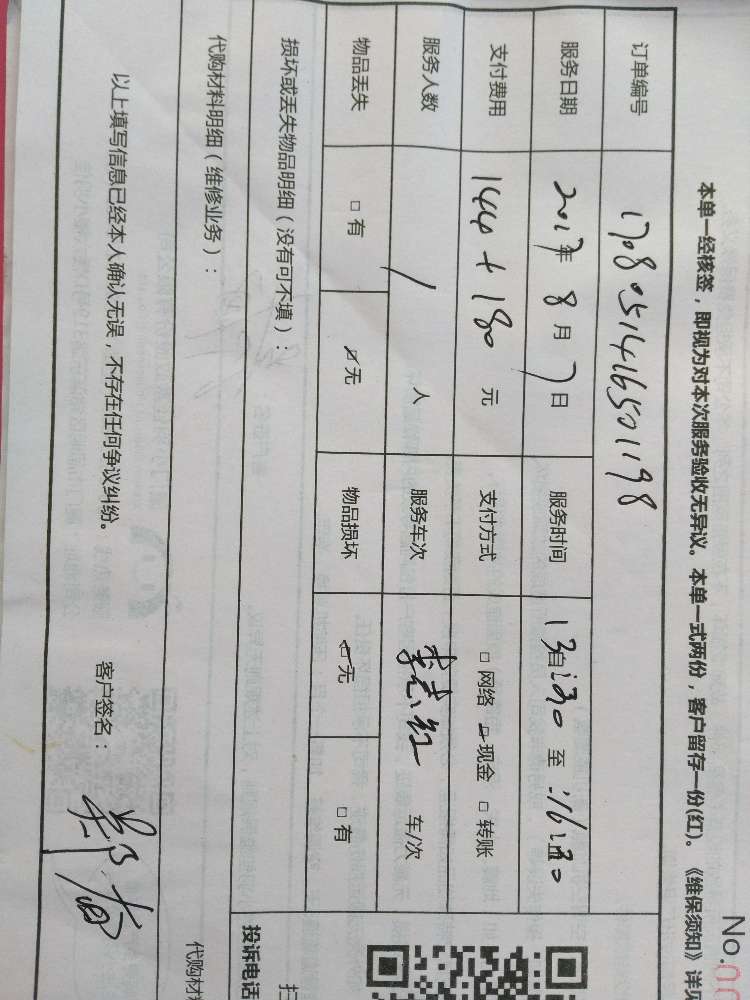 No.00
本单一经核签，即视为对本次服务验收无异议。本单一式两份，客户留存一份(红)。《维保须知》详见
订单编号 170805141650119８
服务日期 2017年 8月 7日 服务时间 13自:30 至 :16:30
支付费用 144+180 元 支付方式 □网络 □现金 □转账
服务人数 1 人 服务车次 李志红 车/次
物品丢失 □有 □无 物品损坏 □无 □有
损坏或丢失物品明细（没有可不填）：
代购材料明细（维修业务）：
以上填写信息已经本人确认无误，不存在任何争议纠纷。 客户签名：
投诉电话
扫
代购材料